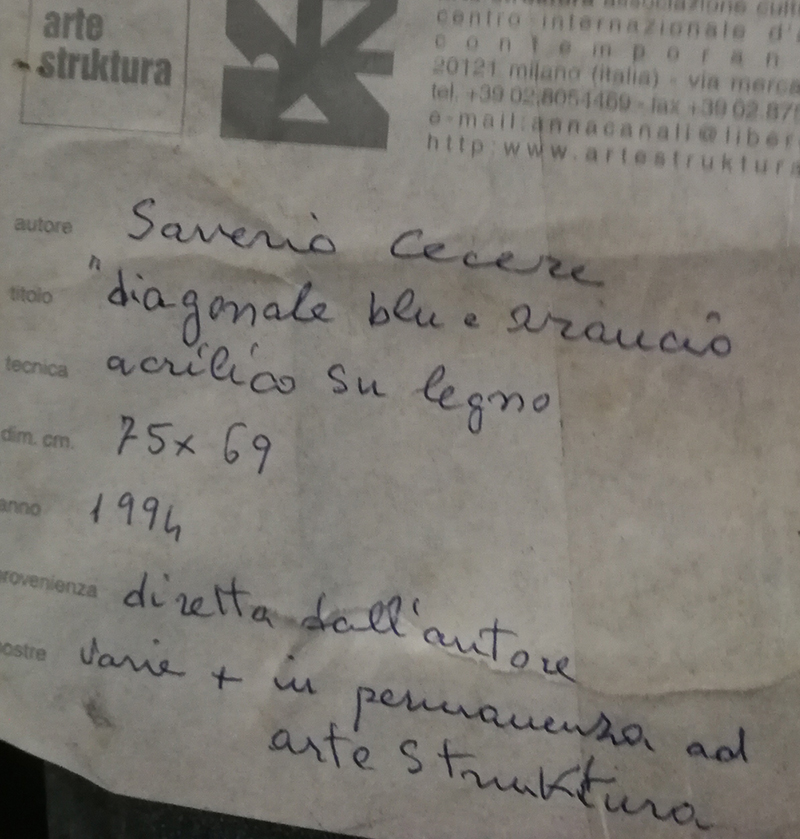 arte
struktura
associazione
centro internazionale
20121 milano (italia) - via
tel. +39 02.8054469 - fax +39 02
e-mail:annacanali@
http:www.artestruktura
autore Saverio Cecere
titolo "diagonale blu e arancio
tecnica acrilico su legno
dim. cm. 75x 69
anno 1994
provenienza diretta dall'autore
mostre varie + in permanenza ad
arte struktura